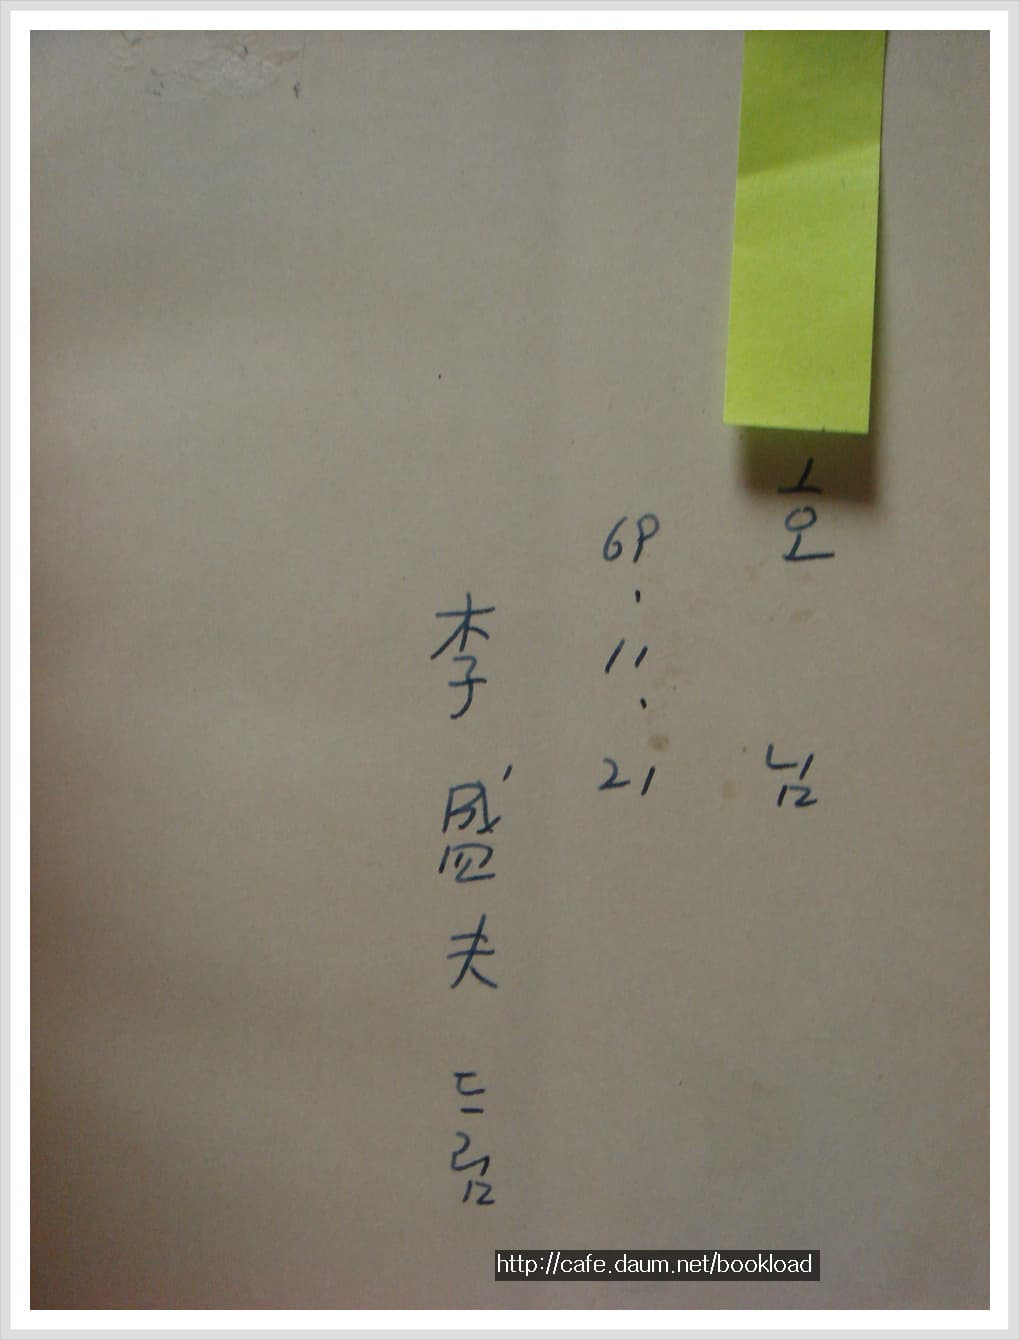 호 님
69. 11. 21
李 盛夫 드림
http://cafe.daum.net/bookload